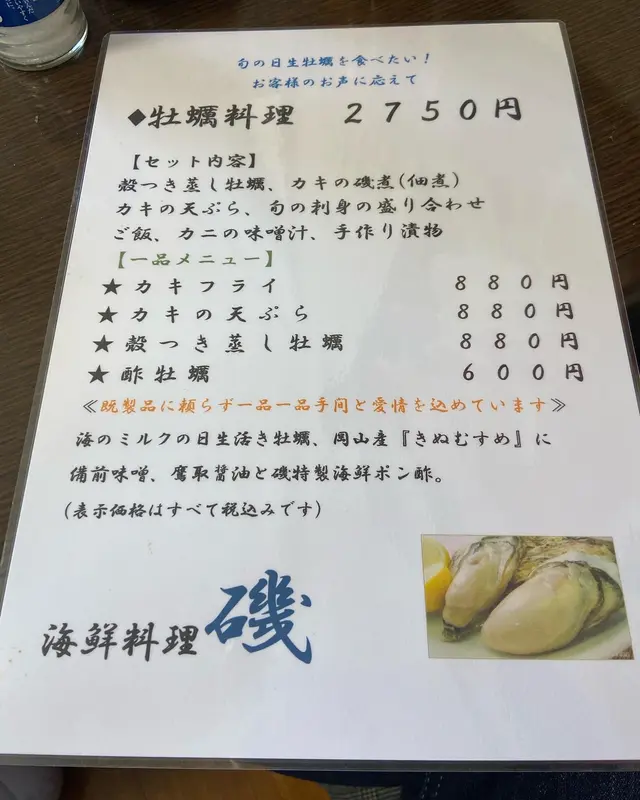 旬の日生牡蠣を食べたい!
お客様のお声に応えて
◆牡蠣料理 2750円
【セット内容】
殻つき蒸し牡蠣、カキの磯煮(佃煮)
カキの天ぷら、旬の刺身の盛り合わせ
ご飯、カニの味噌汁、手作り漬物
【一品メニュー】
★カキフライ 880円
★カキの天ぷら 880円
★殻つき蒸し牡蠣 880円
★酢牡蠣 600円
≪既製品に頼らず一品一品手间と愛情を込めています≫
海のミルクの日生活き牡蠣、岡山産『きぬむすめ』に
備前味噌、鷹取醤油と磯特製海鮮ポン酢。
(表示価格はすべて税込みです)
海鮮料理 磯